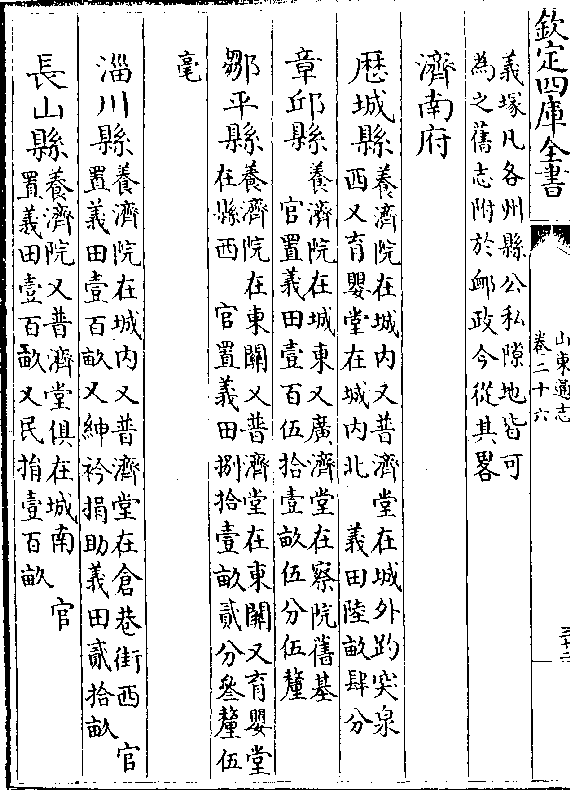 欽定四庫全書
山東通志
卷二十六
義塚凡各州縣公私隙地皆可
為之舊志附於邮政今從其畧
濟南府
歷城縣養濟院在城内又普濟堂在城外趵突泉
西又育嬰堂在城内北 義田陸畝肆分
章邱縣養濟院在城東又廣濟堂在察院舊基
官置義田壹百伍拾壹畝伍分伍釐
鄒平縣養濟院在東關又普濟堂在東關又育嬰堂
在縣西 官置義田捌拾壹畝貳分叄釐伍
毫
淄川縣養濟院在城内又普濟堂在倉巷街西 官
置義田壹百畝又紳衿捐助義田貳拾畝
長山縣養濟院又普濟堂俱在城南 官
置義田壹百畝又民捐壹百畝